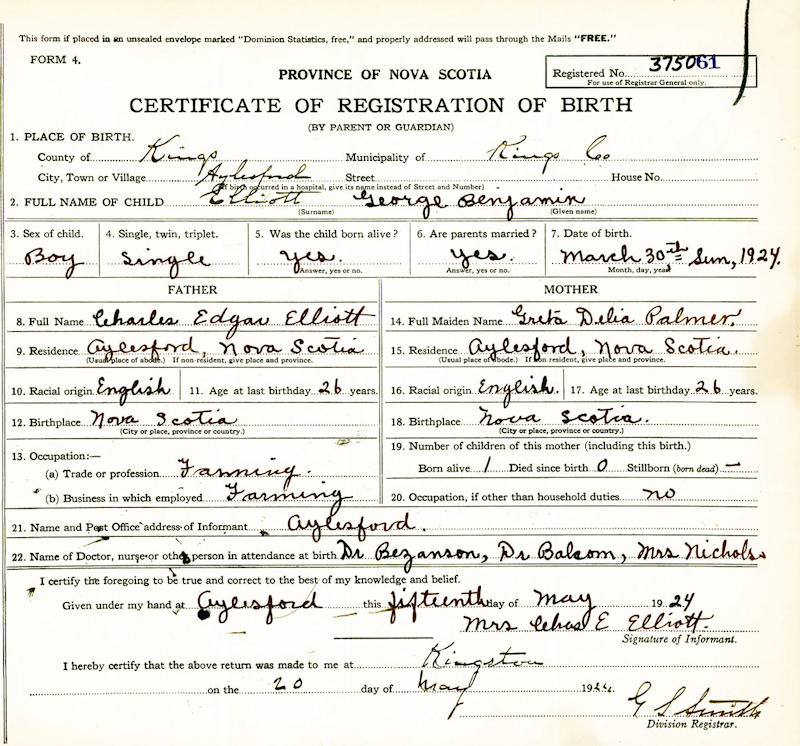 This form if placed in an unsealed envelope marked "Dominion Statistics, free," and properly addressed will pass through the Mails "FREE."
FORM 4.
Registered No. 375061
PROVINCE OF NOVA SCOTIA
For use of Registrar General only.
CERTIFICATE OF REGISTRATION OF BIRTH
(BY PARENT OR GUARDIAN)
1. PLACE OF BIRTH.
County of Kings Municipality of Kings Co
City, Town or Village Aylesford Street House No.
(If birth occurred in a hospital, give its name instead of Street and Number)
2. FULL NAME OF CHILD Elliott George Benjamin
(Surname) (Given name)
3. Sex of child. 4. Single, twin, triplet. 5. Was the child born alive? 6. Are parents married? 7. Date of birth.
Boy Single yes. yes. March 30th Sun, 1924.
Answer, yes or no. Answer, yes or no. Month, day, year
FATHER MOTHER
8. Full Name Charles Edgar Elliott 14. Full Maiden Name Greta Delia Palmer.
9. Residence Aylesford, Nova Scotia 15. Residence Aylesford, Nova Scotia.
(Usual place of abode.) If non-resident, give place and province. (Usual place of abode.) If non-resident, give place and province.
10. Racial origin English 11. Age at last birthday 26 years. 16. Racial origin English. 17. Age at last birthday 26 years.
12. Birthplace Nova Scotia 18. Birthplace Nova Scotia.
(City or place, province or country.) (City or place, province or country.)
13. Occupation:— 19. Number of children of this mother (including this birth.)
(a) Trade or profession Farming. Born alive 1 Died since birth 0 Stillborn (born dead) —
(b) Business in which employed Farming 20. Occupation, if other than household duties no
21. Name and Post Office address of Informant Aylesford.
22. Name of Doctor, nurse or other person in attendance at birth Dr Bezanson, Dr Balcom, Mrs Nichols
I certify the foregoing to be true and correct to the best of my knowledge and belief.
Given under my hand at Aylesford this fifteenth day of May 1924
Mrs Chas E Elliott.
Signature of Informant.
I hereby certify that the above return was made to me at Kingston
on the 20 day of May 1924.
G S Smith
Division Registrar.